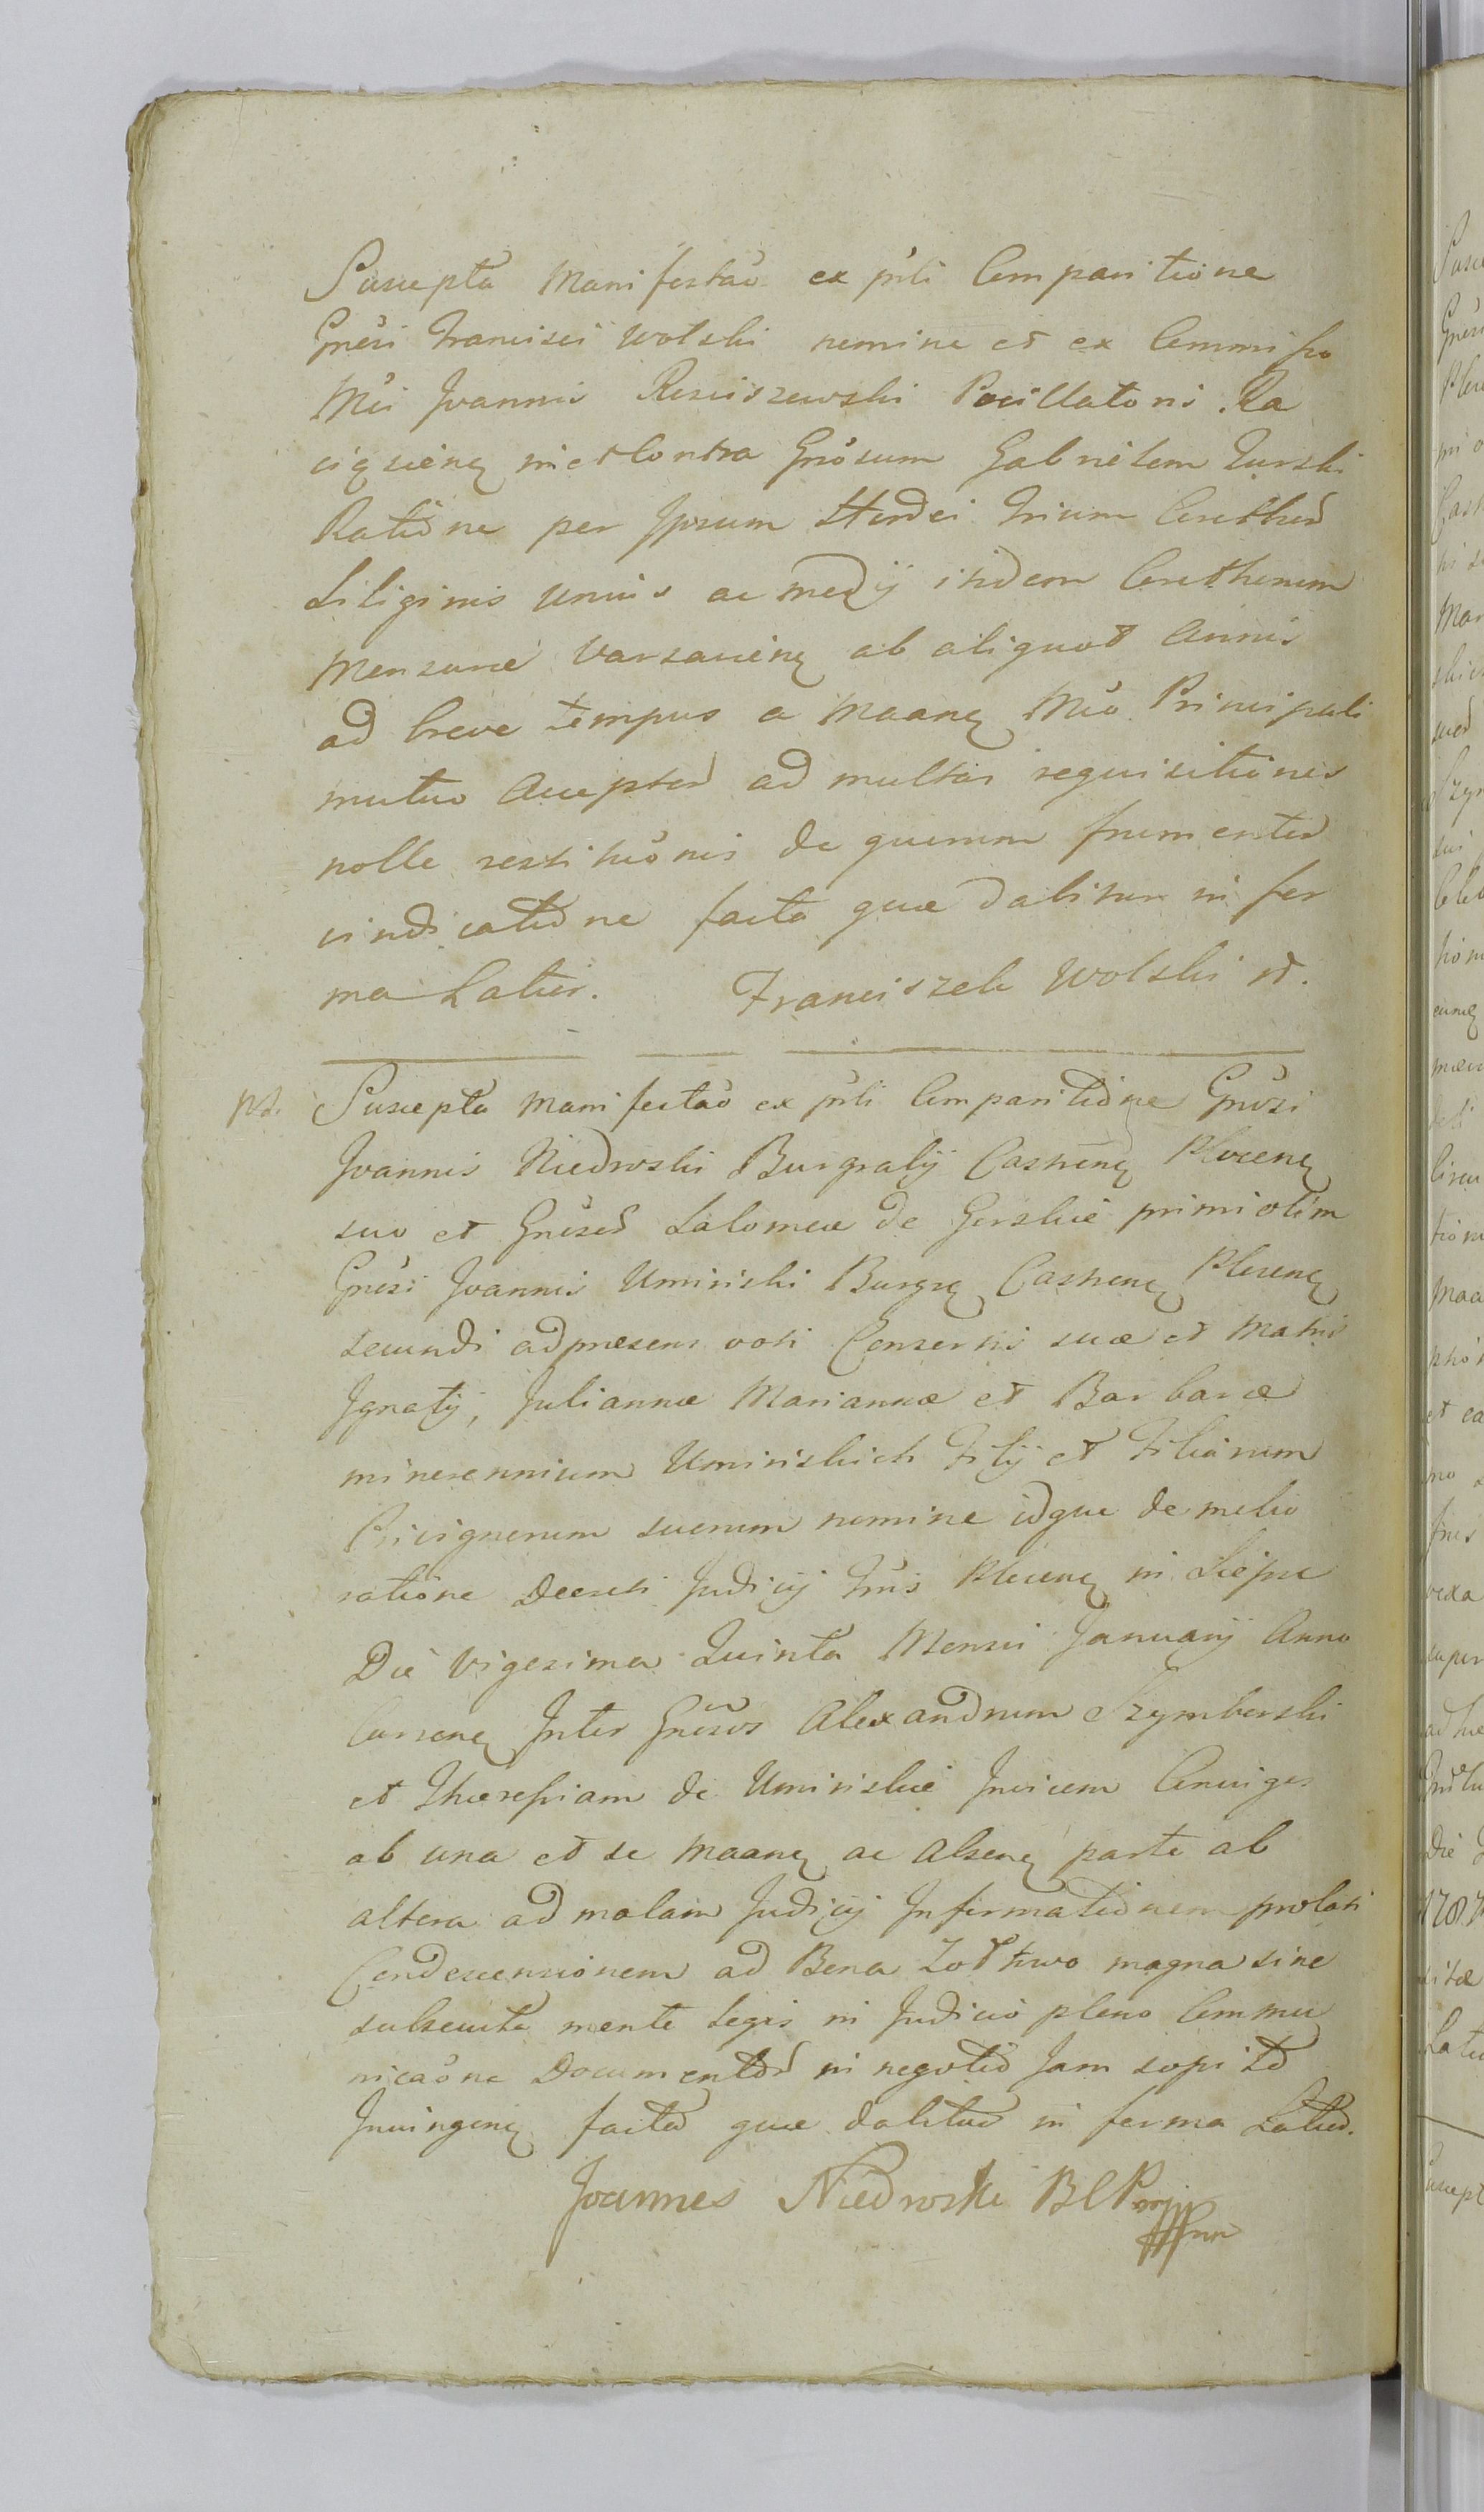 Suscepta Manifestaõ ex pñli Comparitione
Gnẽsi Francisci Wolski nomine et ex Commisso
Mci Joannis Rosciszewski Pocillatoris Ra
ciązień in et Contra Gnõsum Gabrielem Turski
Ratiõne per Ipsum Hordei Trium Corethor
Siliginis Unius ac medij itidem Corethorum
Mensurae Varsavień ab aliquot Annis
ad breve tempus a Maanę Mco Principali
mutuo Acceptor ad multas requisitiones
nolle restituõnis de quorum frumentor
vindicatiõne facta quae dabitur in for
ma Latior. Franciszek Wolski
Suscepta Manifestaõ ex pñli Comparitiõne Gnõsi
Joannis Niedroski Burgrabij Castreń Plocenę
suo et Gnõsae Salomeae de Gorskie primi olim
Gnẽsi Joannis Uminski Burgrę Castrenę Plocenę
secundi ad praesens voti Consortis suae et Matris
Ignatij, Juliannae Mariannae et Barbarae
minorennium Uminskich Filij et Filiarum
Privignorum suorum nomine idque de melio
ratione Decreti Judicij Tris Plocenę in Sierpc
Die Vigesima Quinta Mensis Januarij Anno
Currenę Inter Gnẽsos Alexandrum Szymborski
et Theresiam de Uminskie Invicem Coniuges
ab una et se Maanę ac Absenę parte ab
altera ad malam Judicij Informatiõnem prolati
Condescensionem ad Bona Zoltowo magna sine
subsecuta mente Legis in Judicio pleno Commu
nicaõne Documentor in negotio Jam sopito
Iniungenę facta quae dabitur in forma Latior.
Joannes Niedroski BCP